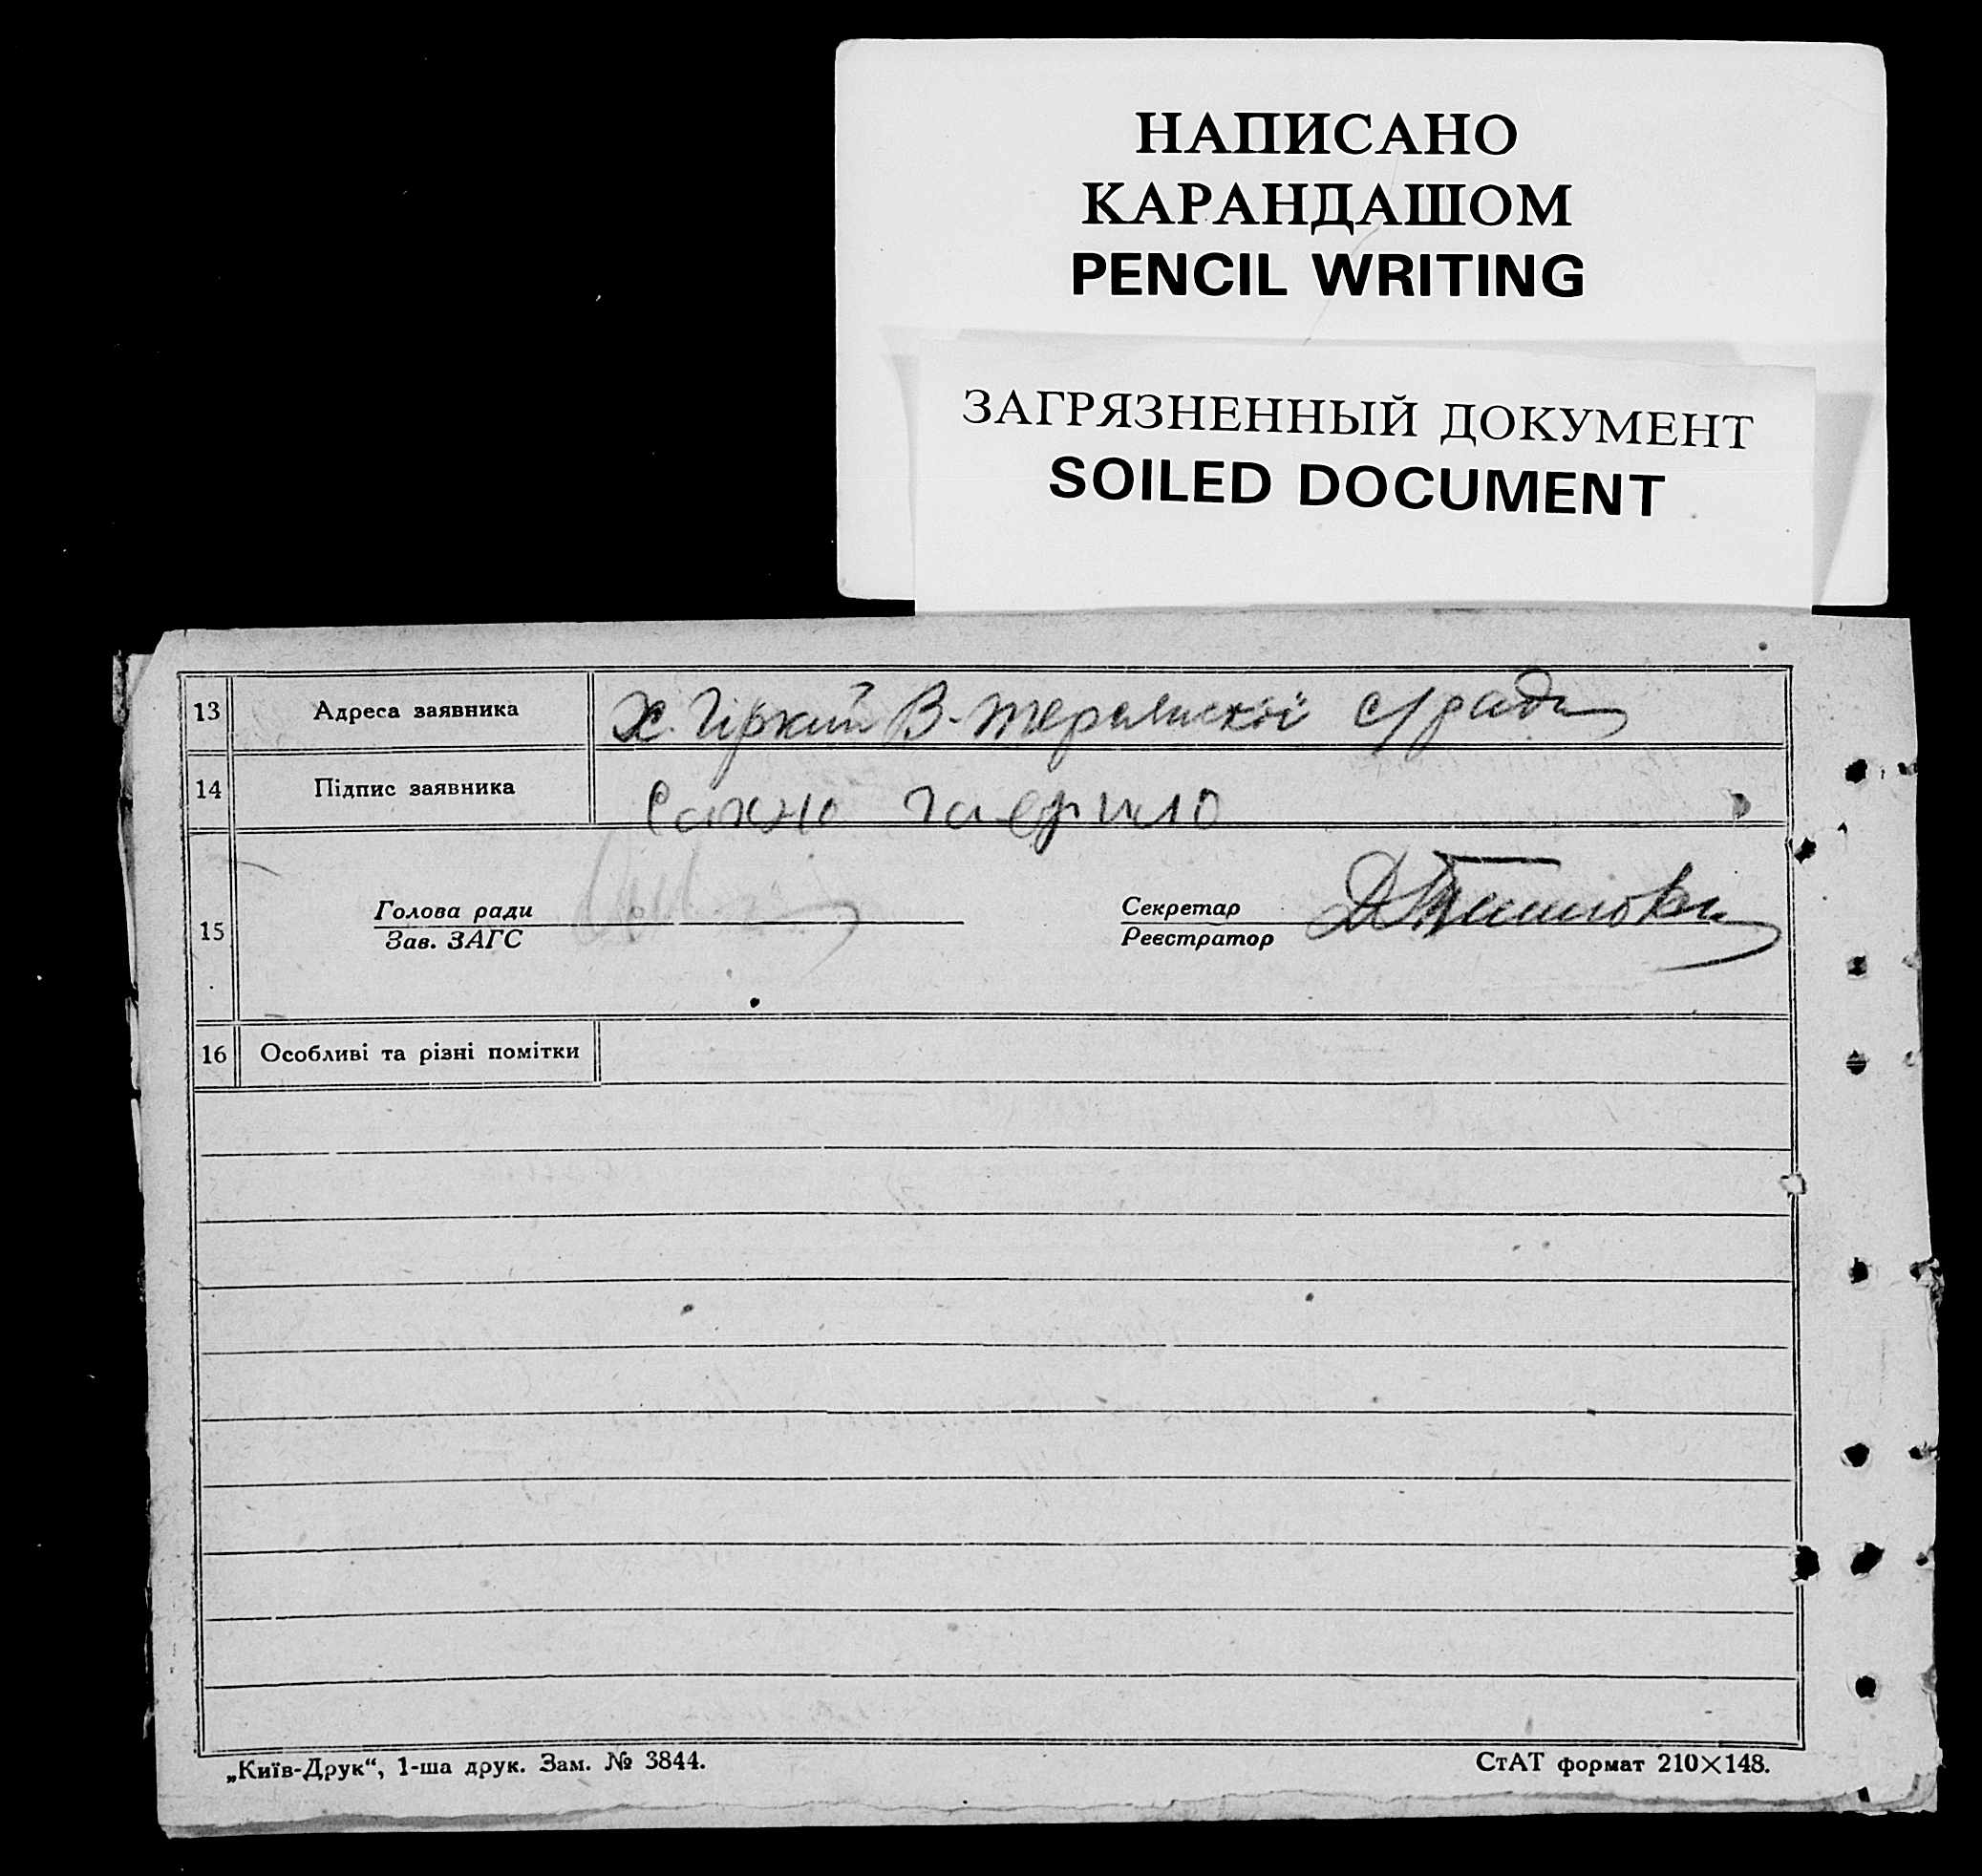 НАПИСАНО
КАРАНДАШОМ
PENCIL WRITING
ЗАГРЯЗНЕННЫЙ ДОКУМЕНТ
SOILED DOCUMENT
13 Адреса заявника х. Гіркий В- с/ради
14 Підпис заявника Сахно гаврило
15 Голова ради Секретар
Зав. ЗАГС Реєстратор
16 Особливі та різні помітки
„Київ-Друк“, 1-ша друк. Зам. № 3844. СтАТ формат 210×148.